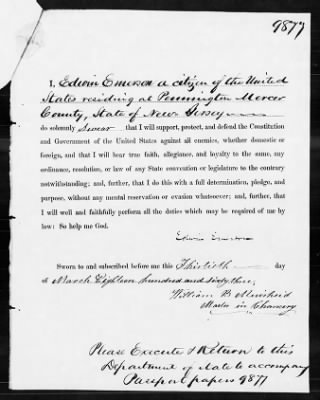 9877
I, Edwin Emerson a citizen of the United
States residing at Pennington Mercer
County, State of New Jersey
do solemnly swear that I will support, protect, and defend the Constitution
and Government of the United States against all enemies, whether domestic
or foreign, and that I will bear true faith, allegiance, and loyalty to the same, any
ordinance, resolution, or law of any State convention or legislature to the contrary
notwithstanding; and, further, that I do this with a full determination, pledge, and
purpose, without any mental reservation or evasion whatsoever; and, further, that
I will well and faithfully perform all the duties which may be required of me by
law: So help me God.
Edwin Emerson
Sworn to and subscribed before me this Thirtieth day
of March Eighteen hundred and sixty three,
William B
Master in Chancery
Please Execute & Return to this
Department of State to accompany
Passport papers 9877